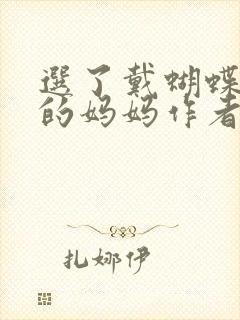 選了戴蝴蝶
的妈妈作者
扎娜伊